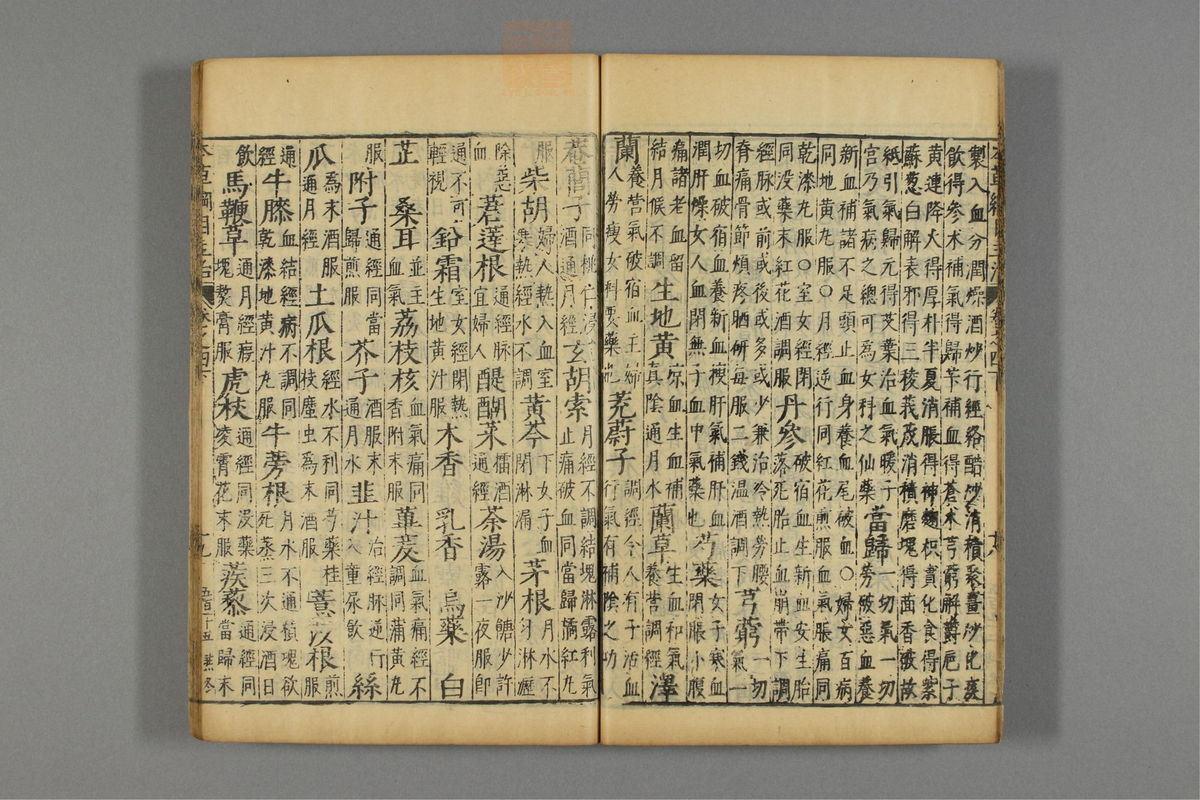 製入血分潤燥酒炒行經絡醋炒消積聚薑炒化痰
飲得參术補氣得歸芐補血得蒼术芎藭解鬱得巵子
黃連降火得厚朴半夏消脹得神麴枳實化食得紫
蘇葱白解表邪得三稜莪茂消積磨塊得茴香破故
紙引氣歸元得艾葉治血氣暖子
宮乃氣病之總司為女科之仙藥 當歸 一切氣一切勞破惡血養
新血補諸不足頭止血身養血尾破血○婦女百病
同地黃丸服○月經逆行同紅花煎服血氣脹痛同
乾漆丸服○室女經閉
同没藥末紅花酒調服 丹參 破宿血生新血安生胎落死胎止血崩帶下調
經脉或前或後或多或少兼治冷熱勞腰
脊痛骨節煩疼晒研每服二錢温酒調下 芎藭 一切氣一
切血破宿血養新血搜肝氣補肝血
潤肝燥女人血閉無子血中氣藥也 芍藥 女子寒血閉脹小腹
痛諸老血留
結月候不調 生地黃 凉血生血補真陰通月水 蘭草 生血和氣養營調經 澤
蘭 養營氣破宿血主婦人勞瘦女科要藥也 茺蔚子 調經令人有子活血行氣有補陰之功
菴䕡子 同桃仁浸酒通月經 玄胡索 月經不調結塊淋露利氣止痛破血同當歸橘紅丸
服 柴胡 婦人熱入血室寒熱經水不調 黃芩 下女子血閉淋漏 茅根 月水不勻淋瀝
除惡血 茖蓬根 通經脉宜婦人 醍醐菜 擂酒通經 茶湯 入沙糖少許露一夜服即
通不可輕視 鉛霜 室女經閉熱生地黃汁服 木香 乳香 烏藥 白
芷 桑耳 並主血氣 荔枝核 血氣痛同香附末服 菫荽 血氣痛經不調同蒲黃丸
服 附子 通經同當歸煎服 芥子 酒服末通月水 韭汁 治經脉逆行入童尿飲 絲
瓜 為末酒服通月經 土瓜根 經水不利同芍藥桂枝䗪虫為末酒服 薏苡根 煎服
通經 牛膝 血結經病不調同乾漆地黃汁丸服 牛蒡根 月水不通積塊欲死蒸三次浸酒日
飲 馬鞭草 通月經瘕塊熬膏服 虎杖 通經同没藥凌霄花末服 蒺藜 通經同當歸末